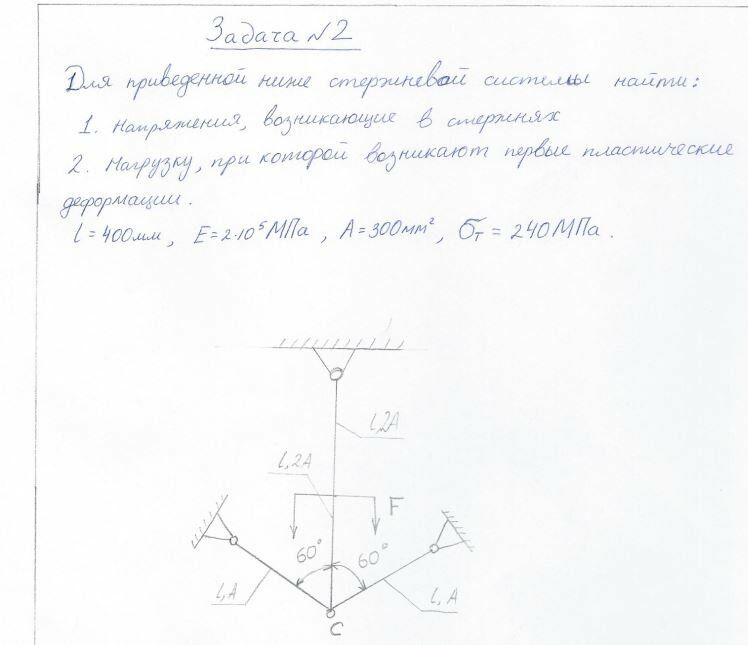 Задача №2
Для приведенной ниже стержневой системы найти:
1. Напряжения, возникающие в стержнях
2. Нагрузку, при которой возникают первые пластические
деформации.
l=400мм, E=2·10⁵МПа, A=300мм², σт=240МПа.
l,2A
l,2A
F
60° 60°
l,A
l,A
C